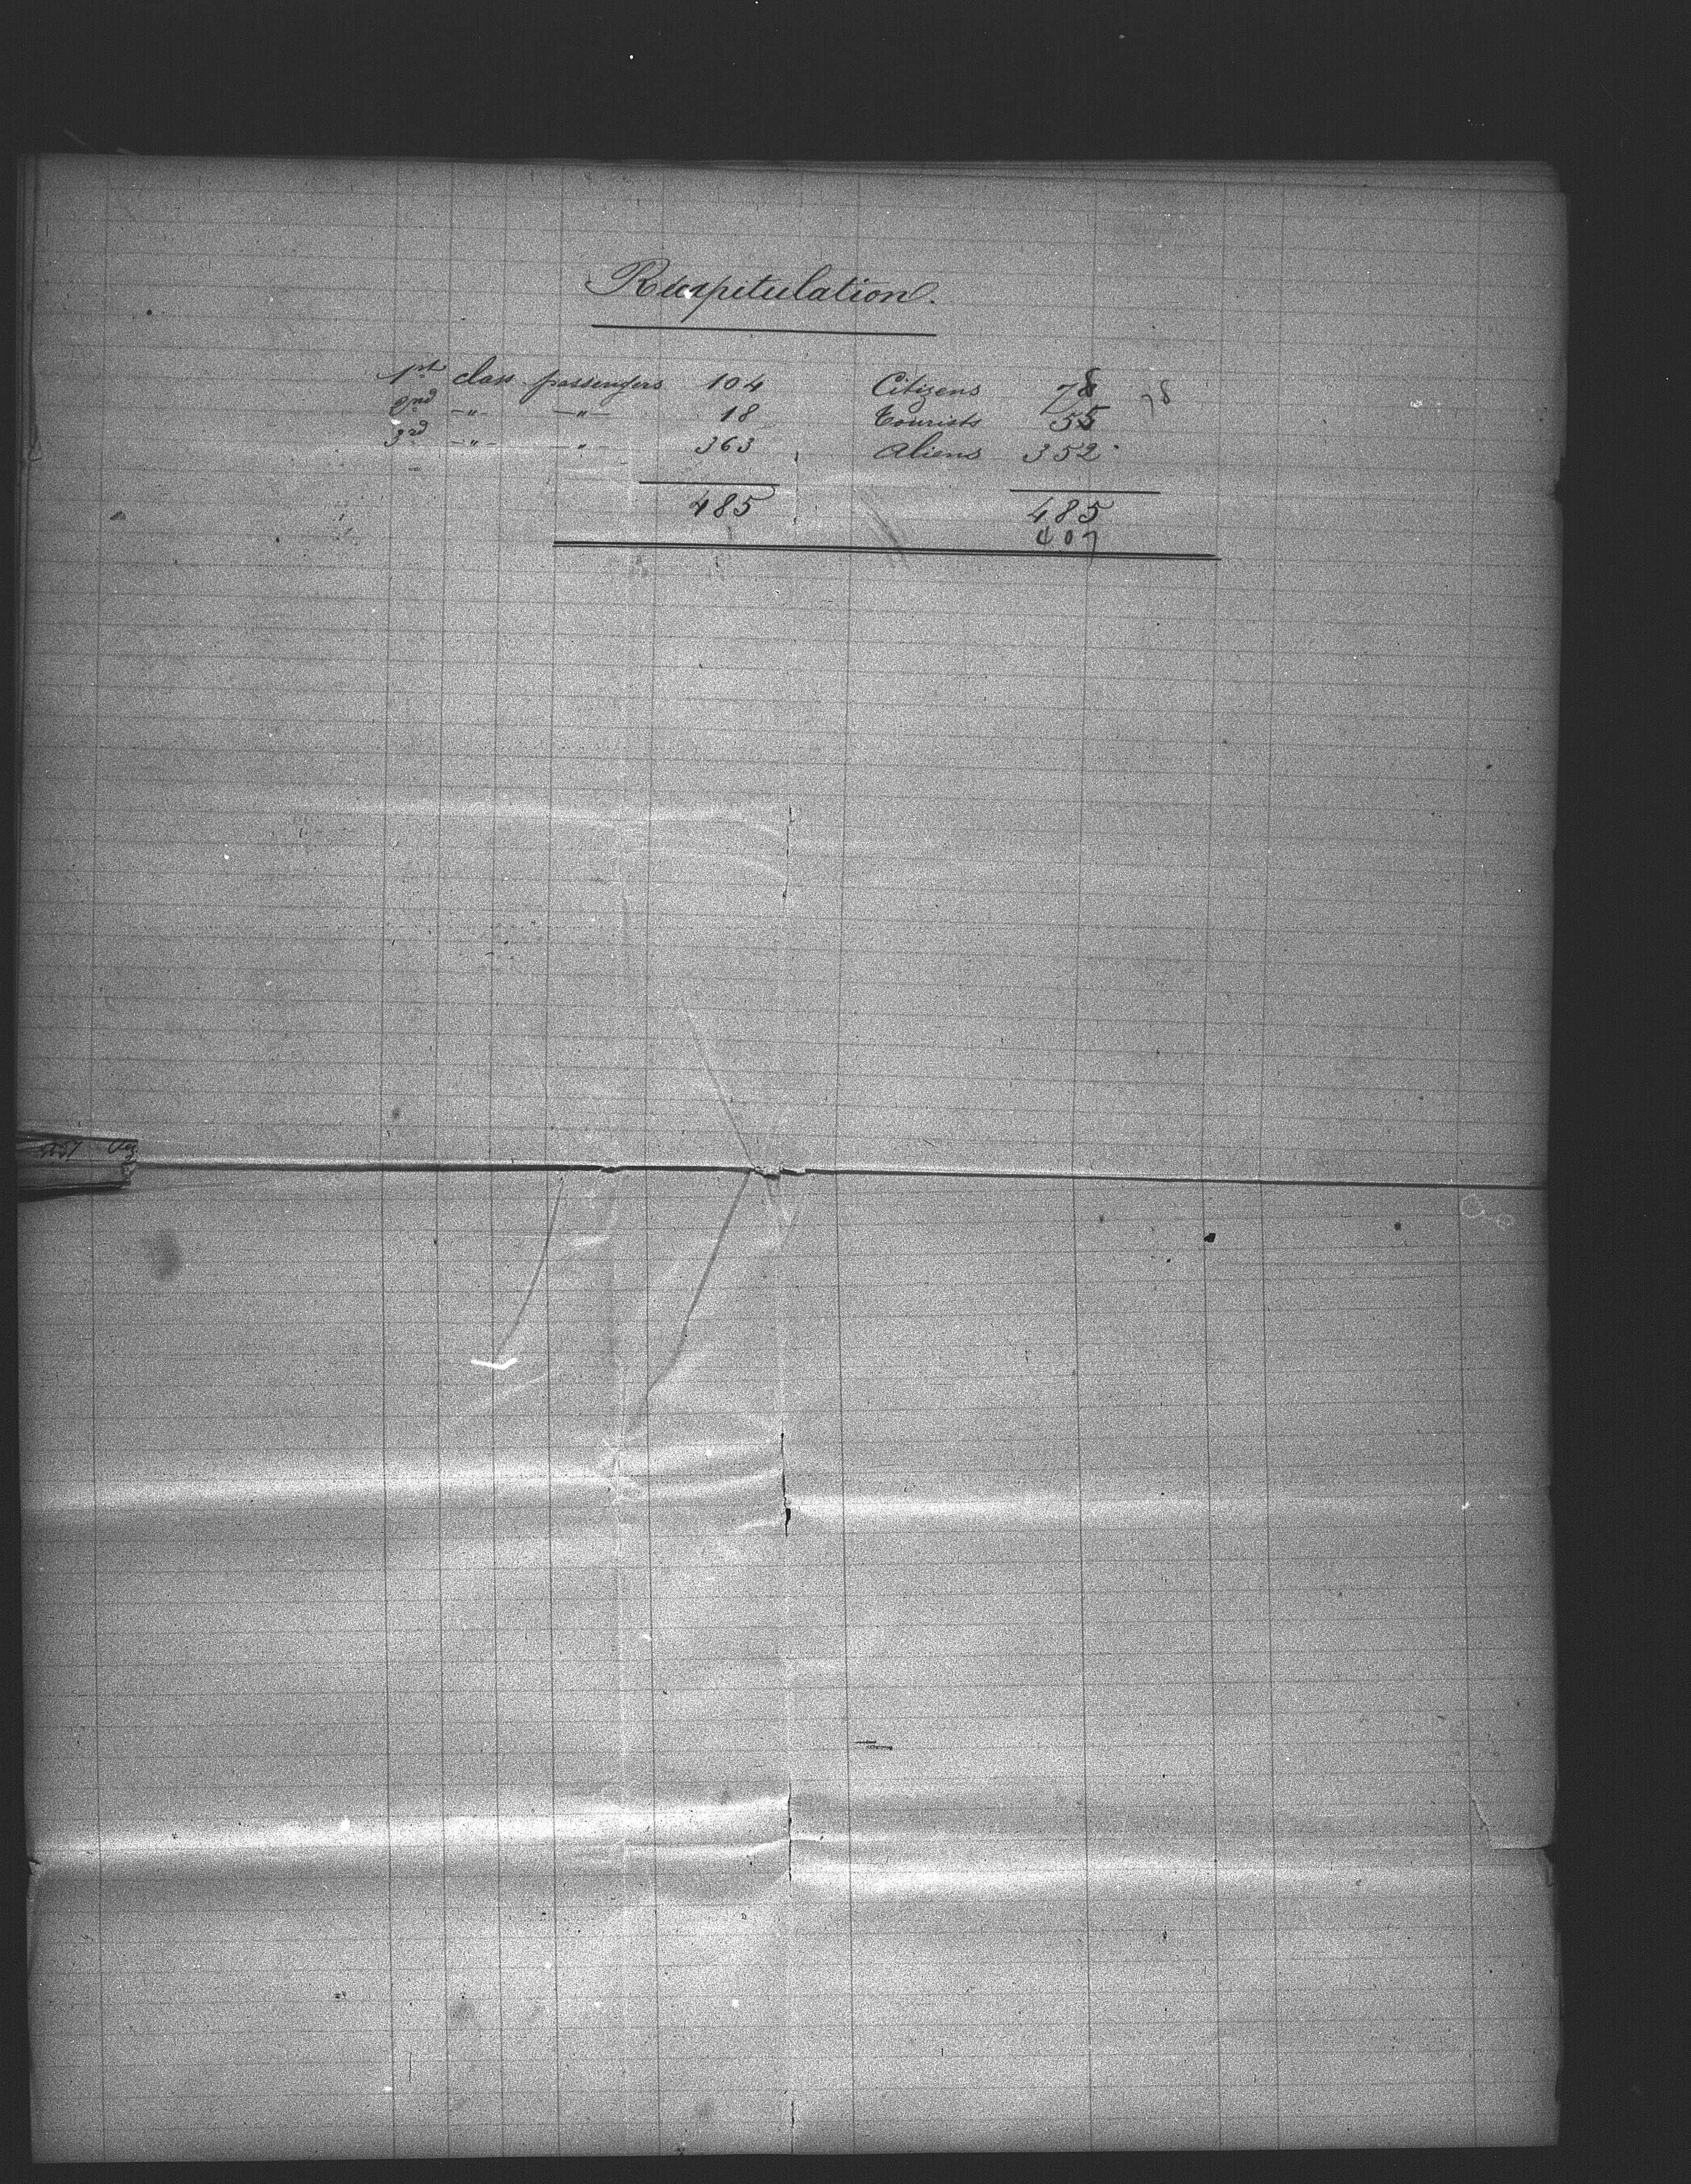 Recapitulation.
1st class passengers 104 Citizens 78 78
2nd -"- -"- 18 Tourists 55
3rd -"- -"- 363 Aliens 352
485 485
407